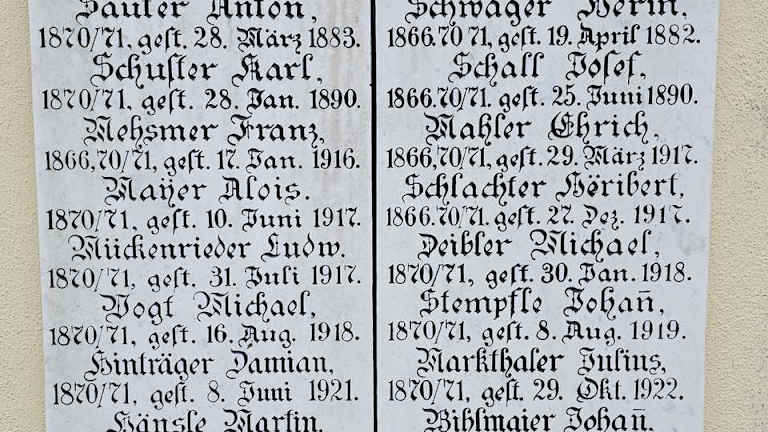 Sauter Anton,
1870/71, gest. 28. März 1883.
Schuster Karl,
1870/71, gest. 28. Jan. 1890.
Mehsmer Franz,
1866,70/71, gest. 17. Jan. 1916.
Mayer Alois.
1870/71, gest. 10. Juni 1917.
Mückenrieder Ludw.
1870/71, gest. 31. Juli 1917.
Vogt Michael,
1870/71, gest. 16. Aug. 1918.
Hinträger Damian,
1870/71, gest. 8. Juni 1921.
Hänsle Martin.
Schwager Herm.
1866.70 71, gest. 19. April 1882.
Schall Josef,
1866.70/71. gest. 25. Juni 1890.
Mahler Ehrich,
1866,70/71, gest. 29. März 1917.
Schlachter Heribert,
1866.70/71, gest. 27. Dez. 1917.
Deibler Michael,
1870/71, gest. 30. Jan. 1918.
Stempfle Johan̄,
1870/71, gest. 8. Aug. 1919.
Markthaler Julius,
1870/71, gest. 29. Okt. 1922.
Bihlmaier Johan̄.